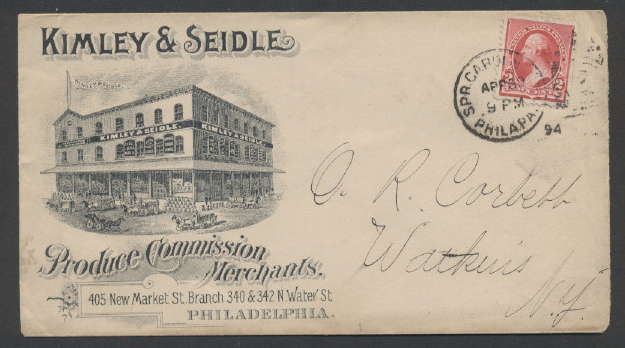 KIMLEY & SEIDLE
KIMLEY & SEIDLE.
KIMLEY & SEIDLE.
Produce Commission
Merchants.
405 New Market St. Branch 340 & 342 N Water St
PHILADELPHIA.
SPR. GARD
APR
9 PM
PHILA. PA.
94
2 2
O. R. Corbett
Watkins
N.Y.